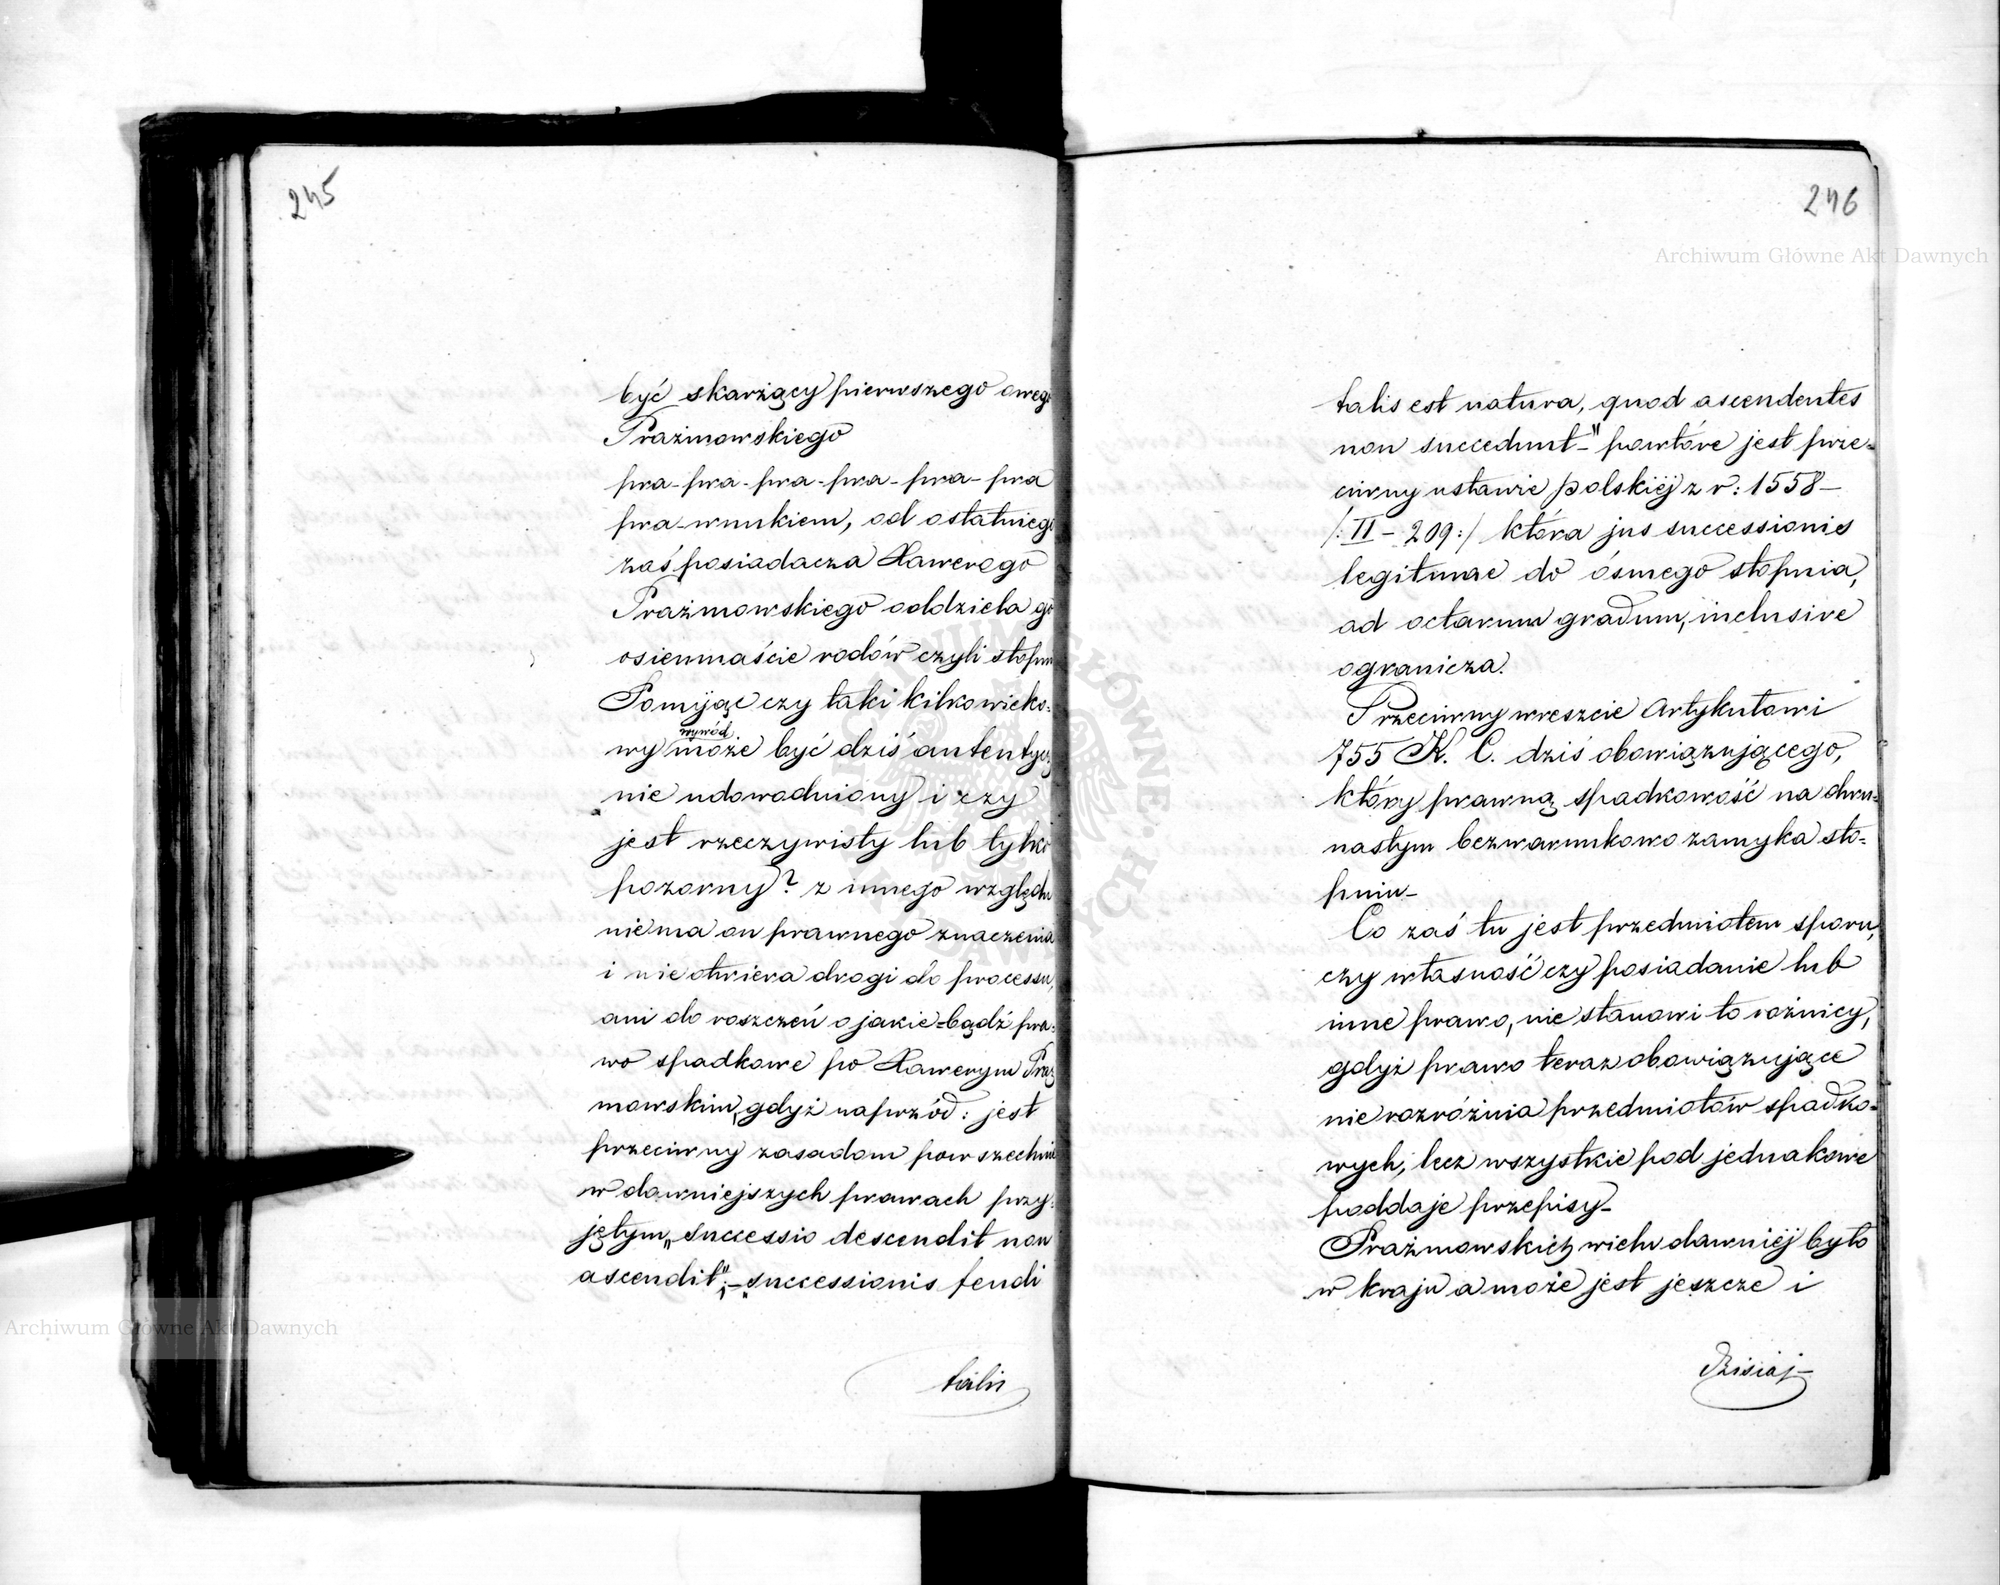 245
być skarżący pierwszego owego
Prażmowskiego
pra-pra-pra-pra-pra-pra
pra-wnukiem, od ostatniego
zaś posiadacza Xawerego
Prażmowskiego oddziela go
osiemnaście rodów czyli stopni
Pomijąc czy taki kilkowieko-
wywód
wy może być dziś autentycz
nie udowodniony i czy
jest rzeczywisty lub tylko
pozorny? z innego względu
niema on prawnego znaczenia
i nie otwiera drogi do processu,
ani do roszczeń o jakie-bądź pra-
wo spadkowe po Xawerym Praż
mowskim, gdyż naprzód: jest
przeciwny zasadom powszechnie
w dawniejszych prawach przy-
jętym „successio descendit non
ascendit”;- successionis feudi
talis
246
talis est natura, quod ascendentes
non succedunt-" powtóre jest prze-
ciwny ustawie polskiej z r: 1558-
/:II-209:/ która jus successionis
legitimae do ósmego stopnia,
ad octavum gradum, inclusive
ogranicza.
Przeciwny wreszcie Artykułowi
755 K. C. dziś obowiązującego,
który prawną spadkowość na dwu-
nastym bezwarunkowo zamyka sto-
pniu-
Co zaś tu jest przedmiotem sporu,
czy własność czy posiadanie lub
inne prawo, nie stanowi to rożnicy,
gdyż prawo teraz obowiązujące
nie rozróżnia przedmiotów spadko-
wych, lecz wszystkie pod jednakowe
poddaje przepisy-
Prażmowskich wielu dawniej było
w kraju a może jest jeszcze i
dzisiaj-
Archiwum Główne Akt Dawnych
Archiwum Główne Akt Dawnych